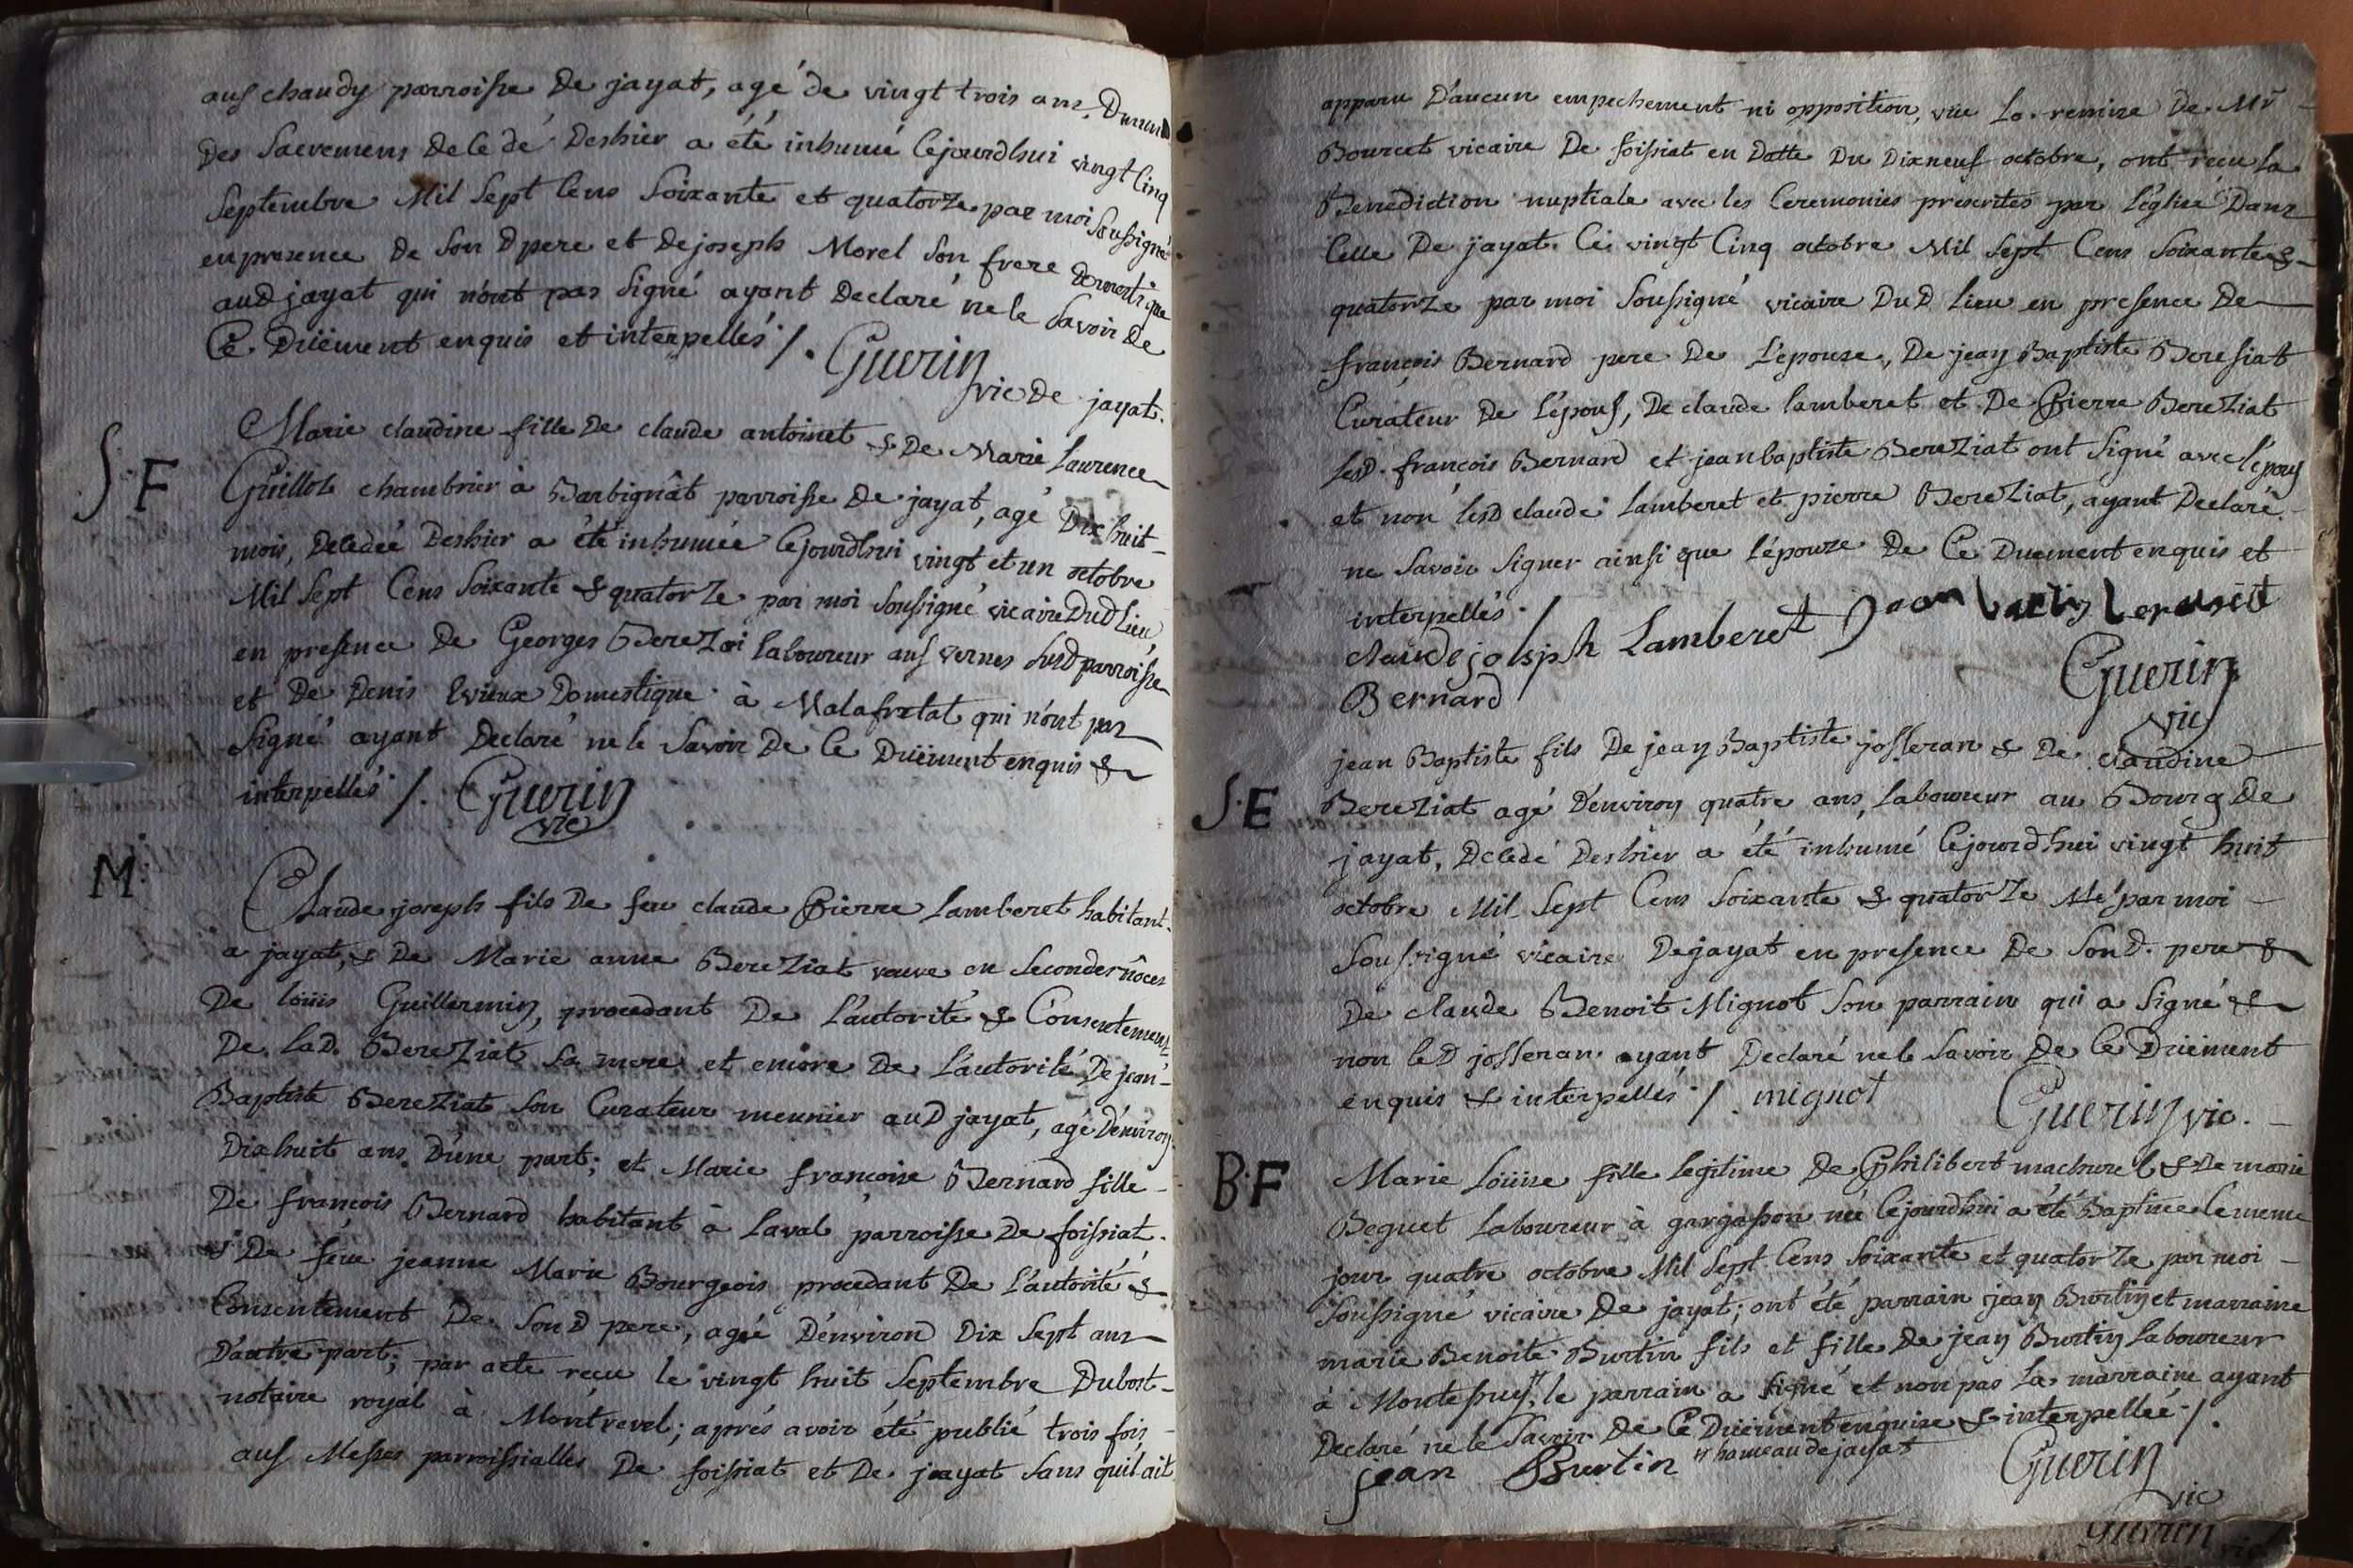 aus chaudy parroisse De jayat, agé de vingt trois ans, Dmuni
Des Sacremens Decedé Deshier a été inhumé Cejourdhui vingt Cinq
Septembre Mil Sept Cens Soixante et quatorze par moi Soussigné
en presence De Son D pere et De joseph Morel Son frere Domestique
auD jayat qui n'ont pas Signé ayant Declaré ne le Savoir De
Ce Düement enquis et interpellés /. Guerin
vic De jayat.
S. F
Marie claudine fille De claude antoinet & De Marie Laurence
Guillot chambrier à Barbignat parroisse De jayat, agé Dix huit
mois, Decedée Deshier a été inhumée Cejourdhui vingt et un octobre
Mil Sept Cens Soixante & quatorze par moi Soussigné vicaire DuD Lieu
en presence De Georges Berezai laboureur aus vernes susD parroisse
et De Denis Domestique à Malafretat qui n'ont pas
Signé ayant Declaré ne le Savoir De Ce Düement enquis &
interpellés /. Guerin
vic
M.
Claude joseph fils De feu claude Pierre Lamberet habitant
a jayat, & De Marie anne Bereziat veuve en Secondes nôces
De loüis Guillermin, procedant De L'autorité & Consentement
De LaD. Bereziat Sa mere et encore De L'autorité De jean
Baptiste Bereziat Son Curateur meunier auD jayat, agé D'environ
Dix huit ans D'une part; et Marie francoise Bernard fille
De françois Bernard habitant à Laval parroisse De foissiat.
& De feüe jeanne Marie Bourgeois procedant De L'autorité &
Consentement De Son D pere, agée D'environ Dix Sept ans
D'autre part; par acte reçu le vingt huit Septembre Dubost
notaire royal à Montrevel; aprés avoir été publié trois fois
aus Messes parroissialles De foissiat et De jayat Sans qu'il ait
apparu D'aucun empechement ni opposition, vüe La remise De Mr
Bourcet vicaire De foissiat en Datte Du Dixneuf octobre, ont reçu La
Benediction nuptiale avec les Ceremonies prescrites par L'église Dans
Celle De jayat. Ce vingt Cinq octobre Mil Sept Cens Soixante &
quatorze par moi Soussigné vicaire DuD Lieu en presence De
françois Bernard pere De L'epouse, De jean Baptiste Beresiat
Curateur De L'épous, De claude lamberet et De Pierre Bereziat
LesD. françois Bernard et jeanbaptiste Bereziat ont Signé avec l'épous
et non lesD claude Lamberet et pierre Bereziat, ayant Declaré
ne Savoir Signer ainsi que L'épouze De Ce Duement enquis et
interpellés /
claude joseph Lamberet
Bernard
Guerin
vic
S. E
jean Baptiste fils De jean Baptiste josseran & De claudine
Bereziat agé D'environ quatre ans, Laboureur au Bourg De
jayat, Decedé Deshier a été inhumé Cejourdhui vingt huit
octobre Mil Sept Cens Soixante & quatorze par moi
Soussigné vicaire De jayat en presence De Son D. pere &
De claude Benoit Mignot Son parrain qui a Signé &
non leD josseran ayant Declaré ne le Savoir De Ce Düement
enquis & interpellés /. mignot Guerin vic.
B. F
Marie Loüise fille legitime De Philibert machurel & De marie
Beguet Laboureur à gargasson née Cejourdhui a été Baptisée le meme
jour quatre octobre Mil Sept Cens Soixante et quatorze par moi
Soussigné vicaire De jayat; ont été parrain jean Burtin et marraine
marie Benoite Burtin fils et fille De jean Burtin Laboureur
à Montessuy, le parrain a Signé et non pas La marraine ayant
Declaré ne le Savoir De Ce Düement enquise & interpellée /.
jean Burtin hameau de jayat Guerin
vic
Guerin vic